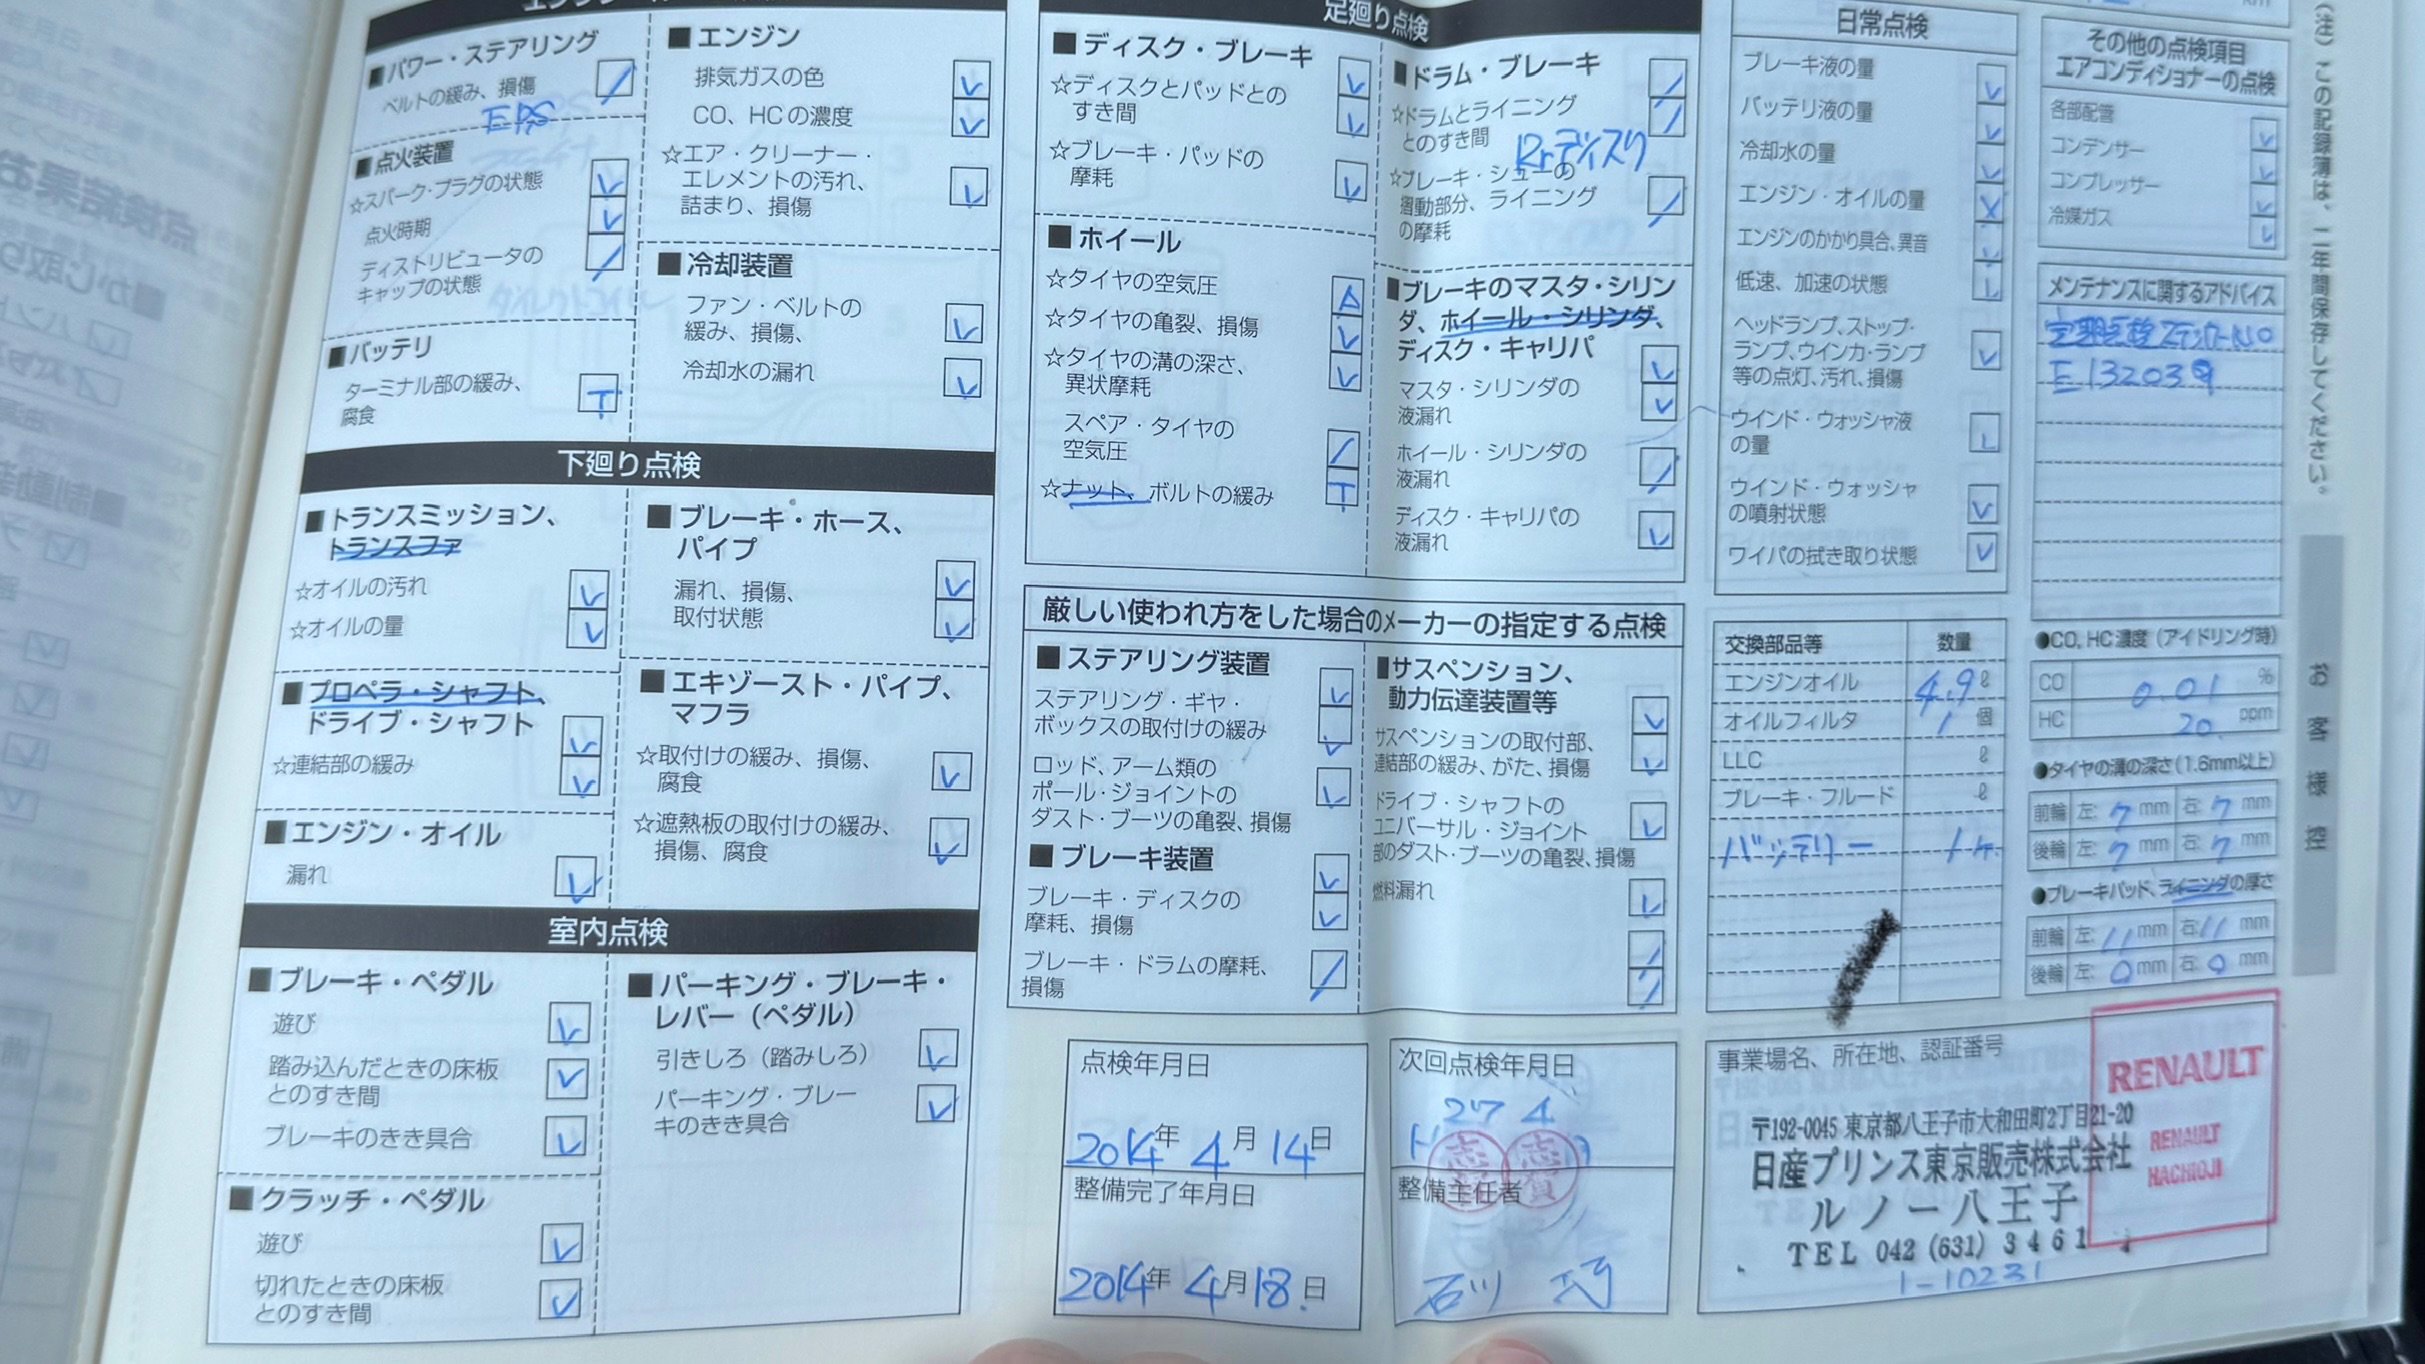 足廻り点検
■パワー・ステアリング
ベルトの緩み、損傷
EPS
■点火装置
☆スパーク・プラグの状態
点火時期
ディストリビュータの
キャップの状態
■バッテリ
ターミナル部の緩み、
腐食
T
■エンジン
排気ガスの色
CO、HCの濃度
☆エア・クリーナー・
エレメントの汚れ、
詰まり、損傷
■冷却装置
ファン・ベルトの
緩み、損傷、
冷却水の漏れ
下廻り点検
■トランスミッション、
トランスファ
☆オイルの汚れ
☆オイルの量
■プロペラ・シャフト、
ドライブ・シャフト
☆連結部の緩み
■エンジン・オイル
漏れ
■ブレーキ・ホース、
パイプ
漏れ、損傷、
取付状態
■エキゾースト・パイプ、
マフラ
☆取付けの緩み、損傷、
腐食
☆遮熱板の取付けの緩み、
損傷、腐食
室内点検
■ブレーキ・ペダル
遊び
踏み込んだときの床板
とのすき間
ブレーキのきき具合
■クラッチ・ペダル
遊び
切れたときの床板
とのすき間
■パーキング・ブレーキ・
レバー（ペダル）
引きしろ（踏みしろ）
パーキング・ブレー
キのきき具合
■ディスク・ブレーキ
☆ディスクとパッドとの
すき間
☆ブレーキ・パッドの
摩耗
■ホイール
☆タイヤの空気圧
A
☆タイヤの亀裂、損傷
☆タイヤの溝の深さ、
異状摩耗
スペア・タイヤの
空気圧
☆ナット、ボルトの緩み
T
■ドラム・ブレーキ
☆ドラムとライニング
とのすき間
Rrディスク
☆ブレーキ・シューの
摺動部分、ライニング
の摩耗
■ブレーキのマスタ・シリン
ダ、ホイール・シリンダ、
ディスク・キャリパ
マスタ・シリンダの
液漏れ
ホイール・シリンダの
液漏れ
ディスク・キャリパの
液漏れ
厳しい使われ方をした場合のメーカーの指定する点検
■ステアリング装置
ステアリング・ギヤ・
ボックスの取付けの緩み
ロッド、アーム類の
ボール・ジョイントの
ダスト・ブーツの亀裂、損傷
■ブレーキ装置
ブレーキ・ディスクの
摩耗、損傷
ブレーキ・ドラムの摩耗、
損傷
■サスペンション、
動力伝達装置等
サスペンションの取付部、
連結部の緩み、がた、損傷
ドライブ・シャフトの
ユニバーサル・ジョイント
部のダスト・ブーツの亀裂、損傷
燃料漏れ
日常点検
ブレーキ液の量
バッテリ液の量
冷却水の量
エンジン・オイルの量
エンジンのかかり具合、異音
低速、加速の状態
ヘッドランプ、ストップ・
ランプ、ウインカ・ランプ
等の点灯、汚れ、損傷
ウインド・ウォッシャ液
の量
ウインド・ウォッシャ
の噴射状態
ワイパの拭き取り状態
その他の点検項目
エアコンディショナーの点検
各部配管
コンデンサー
コンプレッサー
冷媒ガス
メンテナンスに関するアドバイス
定期点検ステッカーNO
E132039
交換部品等 数量
エンジンオイル 4.9ℓ
オイルフィルタ 1個
LLC ℓ
ブレーキ・フルード ℓ
バッテリー 1ケ
●CO、HC濃度（アイドリング時）
CO 0.01 %
HC 20. ppm
●タイヤの溝の深さ（1.6mm以上）
前輪 左: 7 mm 右: 7 mm
後輪 左: 7 mm 右: 7 mm
●ブレーキパッド、ライニングの厚さ
前輪 左: 11 mm 右: 11 mm
後輪 左: mm 右: mm
点検年月日
2014年 4月 14日
整備完了年月日
2014年 4月 18日
次回点検年月日
H 27 4
志賀
志賀
整備主任者
石川
事業場名、所在地、認証番号
〒192-0045 東京都八王子市大和田町2丁目21-20
日産プリンス東京販売株式会社
ルノー八王子
TEL 042 (631) 3461
1-10231
RENAULT
RENAULT
HACHIOJI
（注）この記録簿は、二年間保存してください。
お客様控